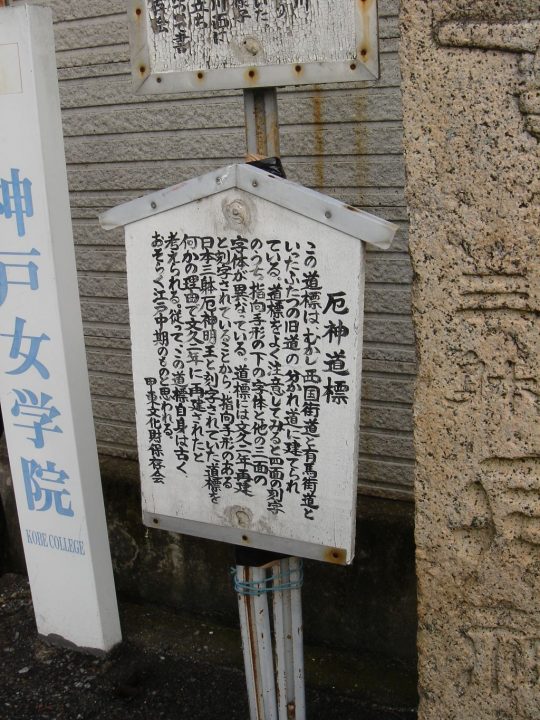 厄神道標
この道標は、むかし西国街道と有馬街道と
いったふたつの旧道の分かれ道に建てられ
ている。道標をよく注意してみると四面の刻字
のうち、指向手形の下の字体と他の三面の
字体が異なっている。道標には文久二年再建
と刻字されていることから、指向手形のある
日本三躰厄神明王と刻字されていた道標を
何かの理由で文久二年に再建されたと
考えられる。従って、この道標自身は古く
おそらく江戸中期のものと思われる。
甲東文化財保存会
神戸女学院
KOBE COLLEGE